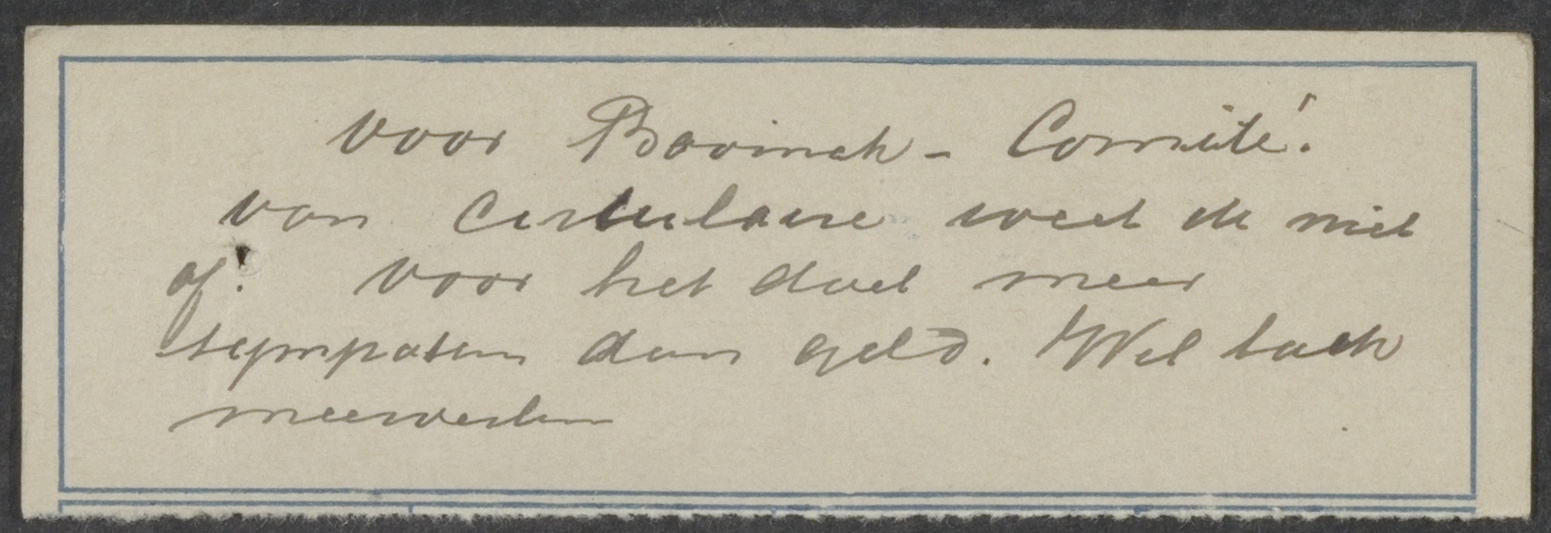 voor Bavinck - Comité.
van Cirkulaire weet ik niet
af. voor het doel meer
sympatien dan geld. Wel
meewerken